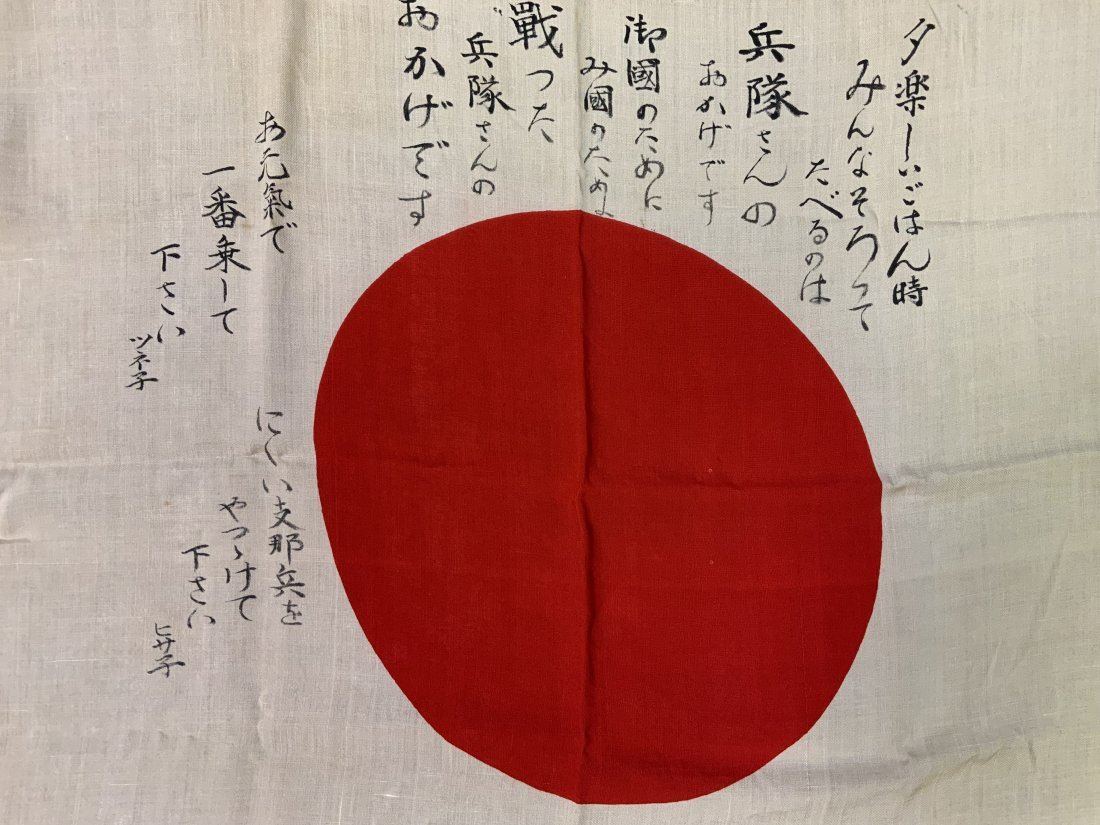 夕楽しいごはん時
みんなそろって
たべるのは
兵隊さんの
おかげです
御國のために
み國のために
戰つた
兵隊さんの
おかげです
お元氣で
一番乗して
下さい
ツネ子
にくい支那兵を
やつゝけて
下さい
ヒサ子